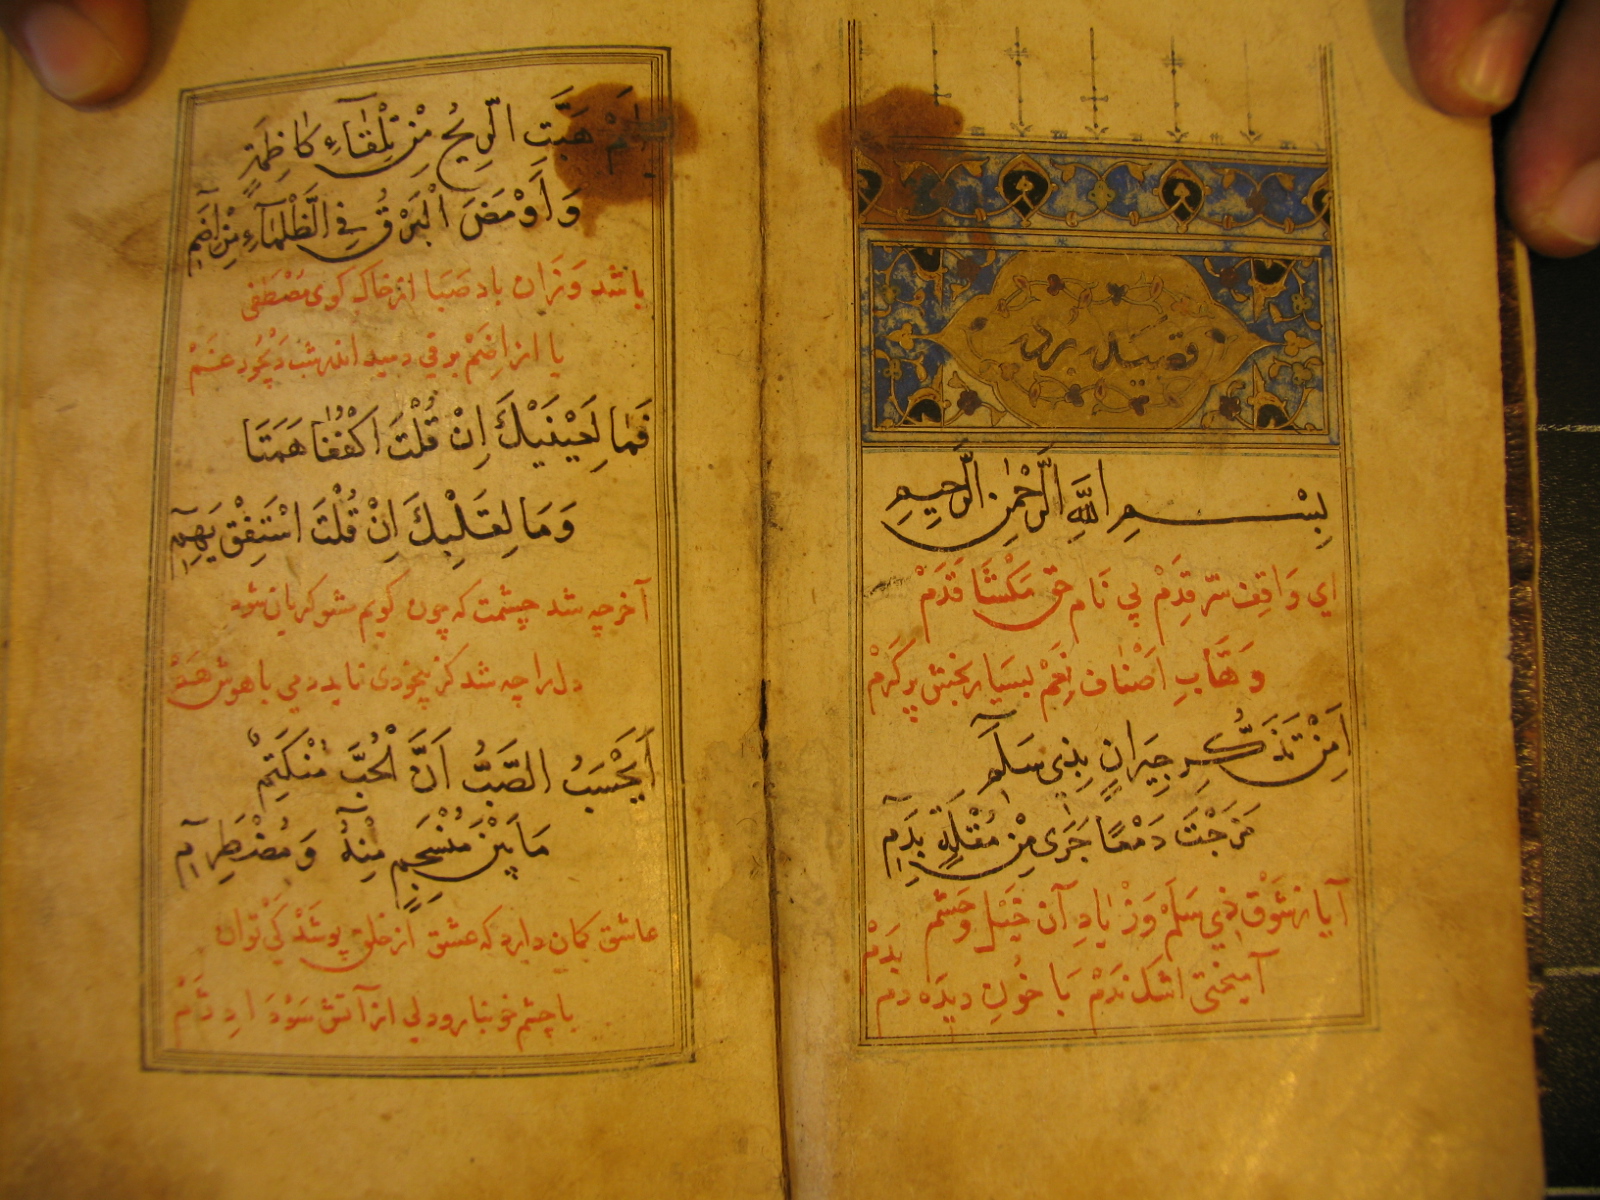 قصیده برده
بِسْمِ اللَّهِ الرَّحْمٰنِ الرَّحِيمِ
اي وَاقِف سّر قِدَمْ پي نَام حق مَكْشَا قَدَمْ
وَهَّابِ اَصْناف نِعَمْ بسيار بخش پر كَرَمْ
اَمِنْ تَذَكُّرِ جِيرَانٍ بِذِي سَلَمٍ
مَزَجْتَ دَمْعًا جَرَى مِنْ مُقْلَةٍ بِدَمِ
آيا ز شَوْق ذي سَلَمْ وَزْ يادِ آن خَيْل وحَشَم
آميختی اشك نَدَمْ بَا خُونِ ديدَه دم بدم
اَمْ هَبَّتِ الرِّيحُ مِنْ تِلْقَاءِ كَاظِمَةٍ
وَاَوْمَضَ الْبَرْقُ فِي الظَّلْمَاءِ مِنْ اِضَمِ
باشد وَزان باد صَبا از خاك كوی مُصْطَفی
يا از اِضَمْ برقي دميد اندر شب دَيْجُور غَمْ
فَمَا لِعَيْنَيْكَ اِنْ قُلْتَ اكْفُفَا هَمَتَا
وَمَا لِقَلْبِكَ اِنْ قُلْتَ اسْتَفِقْ يَهِمِ
آخر چه شد چشمت كه چون كويم مشو كريان شود
دل را چه شد كز بيخودی نايد دمي با هوش هَمْ
اَيَحْسَبُ الصَّبُّ اَنَّ الْحُبَّ مُنْكَتِمٌ
مَا بَيْنَ مُنْسَجِمٍ مِنْهُ وَمُضْطَرِمِ
عاشق كمان دارد كه عشق از خلق پوشَد كَي توان
با چشم خونبار و دلي از آتش سَوْدَا دِژَمْ